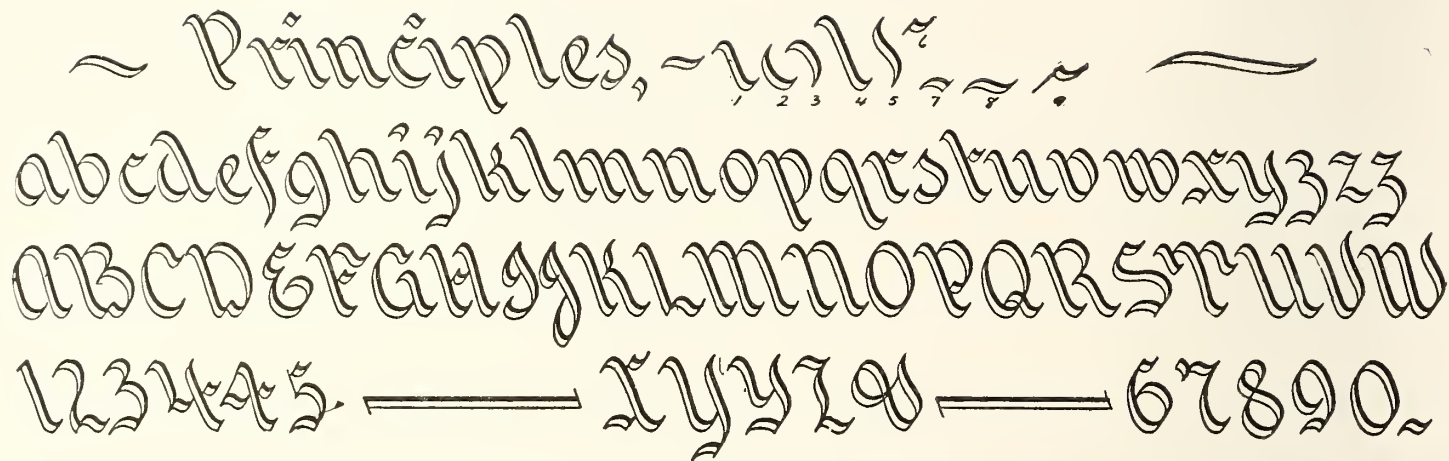 Principles,
1 2 3 4 5 6 7 8 9
abcdefghijklmnopqrstuvwxyzzz
ABCDEFGHIJKLMNOPQRSTUVW
123445 XYYZ& 67890